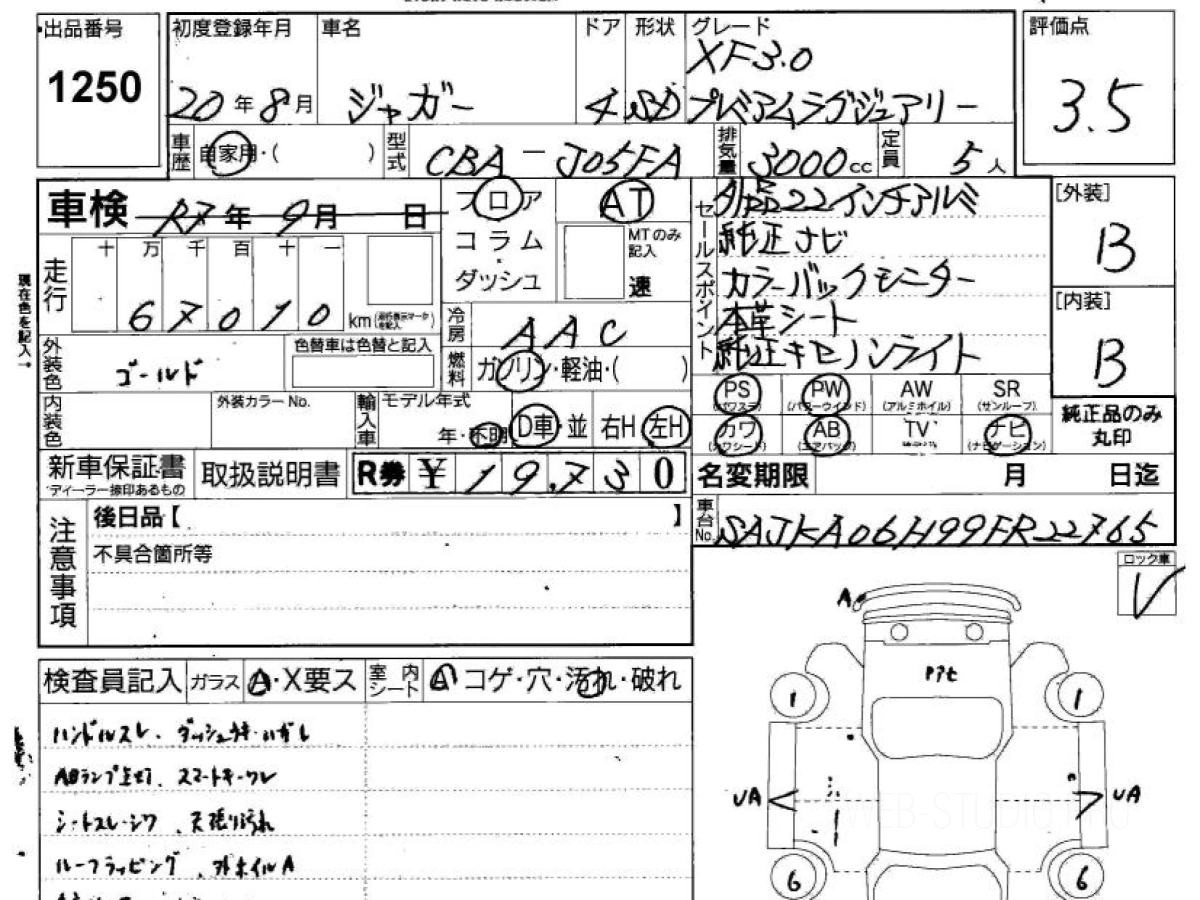 出品番号
1250
初度登録年月 車名 ドア 形状 グレード
20年8月 ジャガー 4 SD XF3.0
プレミアムラグジュアリー
評価点
3.5
車歴 自家用・( ) 型式 CBA-J05FA 排気量 3000cc 定員 5人
車検 R7年9月 日
フロア AT
コラム
ダッシュ
MTのみ記入
速
セールスポイント
外品22インチアルミ
純正ナビ
カラーバックモニター
本革シート
純正キセノンライト
[外装]
B
[内装]
B
純正品のみ
丸印
現在色を記入→
走行 十 万 千 百 十 一
67010 km
冷房 AAC
燃料 ガソリン・軽油・( )
外装色 ゴールド 色替車は色替と記入
内装色 外装カラーNo. 輸入車 モデル年式
年・不明 D車・並 右H 左H
PS (パワステ) PW (パワーウインド) AW (アルミホイル) SR (サンルーフ)
カワ (カワシート) AB (エアバッグ) TV ナビ (ナビゲーション)
新車保証書 ディーラー捺印あるもの 取扱説明書 R券 ¥19,730
名変期限 月 日迄
車台No. SAJKA06H99FR22765
注意事項
後日品【 】
不具合箇所等
ロック車
V
検査員記入 ガラス A・X要ス 室内シート A コゲ・穴・汚れ・破れ
ハンドルスレ、ダッシュウキ・ハガレ
ABランプ点灯、スマートキーワレ
シートスレ・シワ、天張り汚れ
ルーフラッピング、外ホイルA
A
Pit
1 1
UA UA
6 6
WEB-STUDIO.PRO